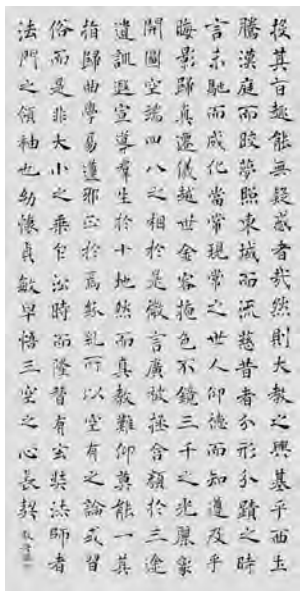 投其旨趣能無疑惑者哉然則大教之興基乎西土
騰漢庭而皎夢照東域而流慈昔者分形分蹟之時
言未馳而成化當常現常之世人仰德而知遵及乎
晦影歸真遷儀越世金容掩色不鏡三千之光麗象
開圖空端四八之相於是微言廣被拯含類於三途
遺訓遐宣導羣生於十地然而真教難仰莫能一其
指歸曲學易遵邪正於焉紛糺所以空有之論或習
俗而是非大小之乘乍沿時而隆替有玄奘法師者
法門之領袖也幼懷貞敏早悟三空之心長契